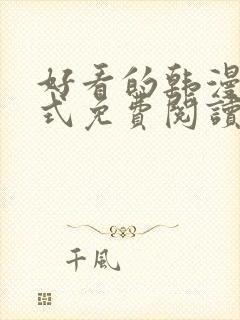 好看的韩漫
式免費閱讀
千風